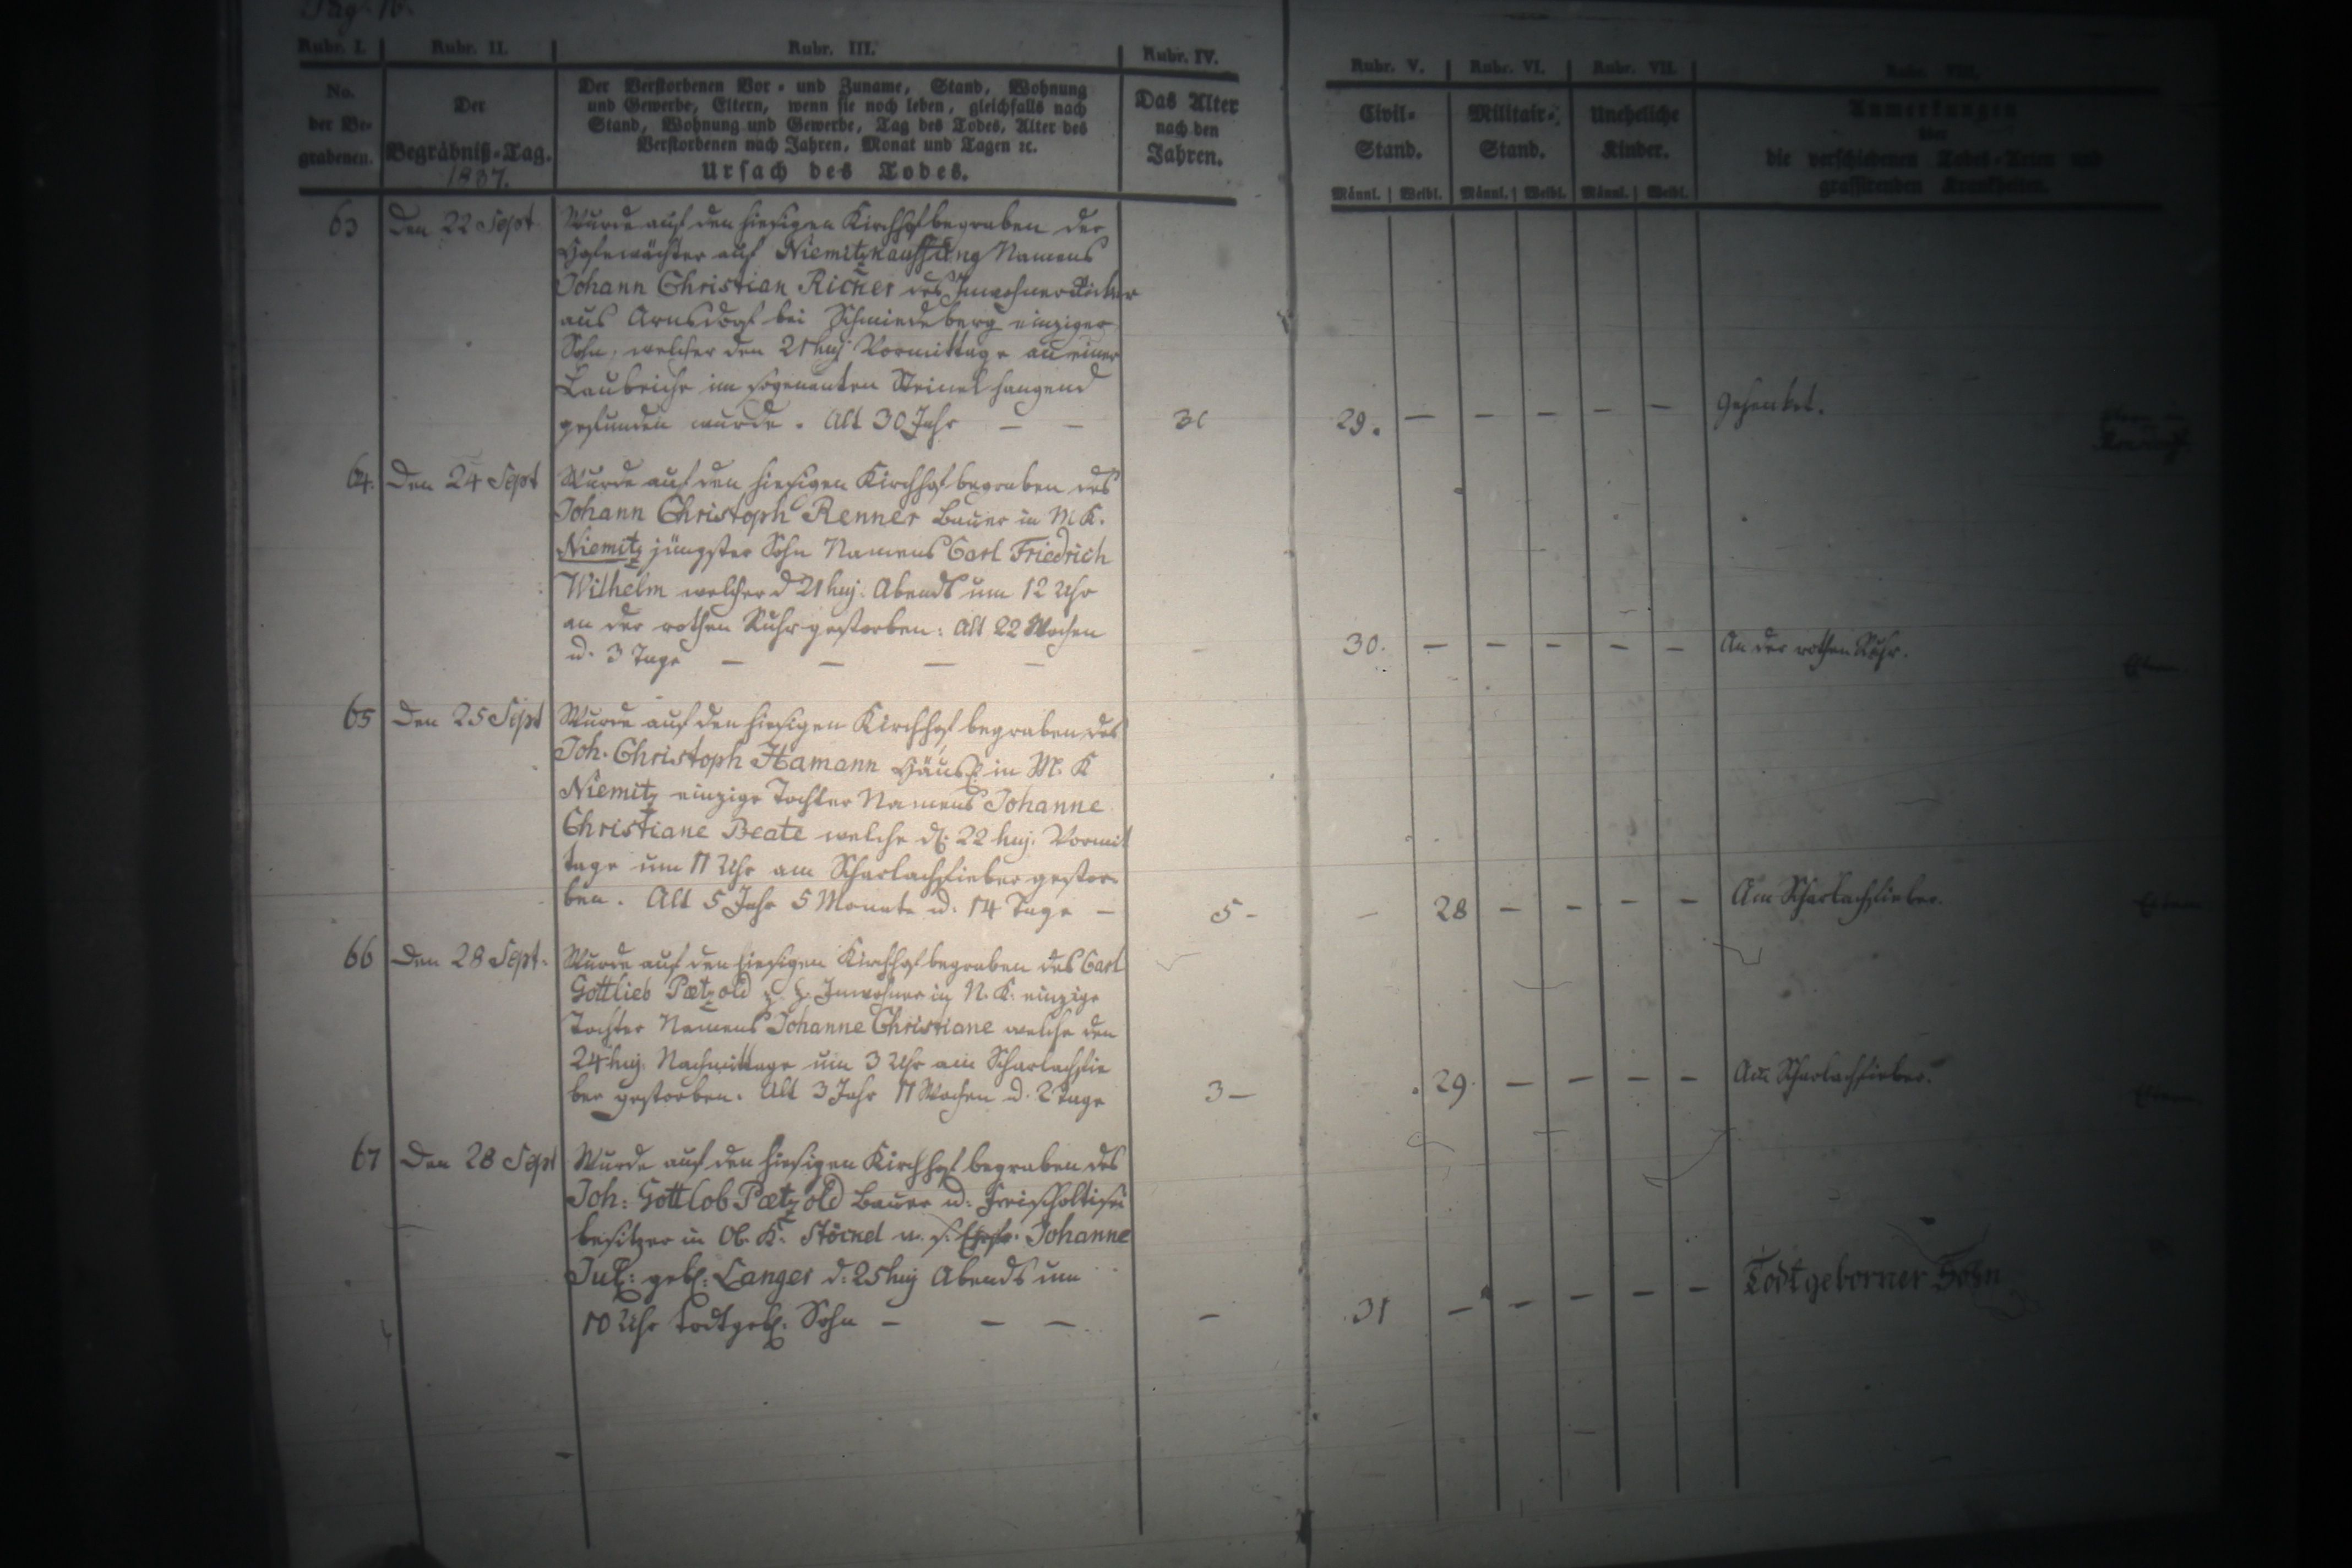 Pag. 16.
Rubr. I. Rubr. II. Rubr. III. Rubr. IV. Rubr. V. Rubr. VI. Rubr. VII. Rubr. VIII.
No.
der Be-
grabenen.
Der
Begräbniß-Tag.
1837.
Der Verstorbenen Vor- und Zuname, Stand, Wohnung
und Gewerbe, Eltern, wenn sie noch leben, gleichfalls nach
Stand, Wohnung und Gewerbe, Tag des Todes, Alter des
Verstorbenen nach Jahren, Monat und Tagen ꝛc.
Ursach des Todes.
Das Alter
nach den
Jahren.
Civil-
Stand.
Männl. Weibl.
Militair-
Stand.
Männl. Weibl.
Uneheliche
Kinder.
Männl. Weibl.
Anmerkungen
über
die verschiedenen Todes-Arten und
grassirenden Krankheiten.
63 Den 22 Sept. Wurde auf den hiesigen Kirchhof begraben der
auf Niemitzkauffung Namens
Johann Christian Ricner des Inwohner
aus Arnsdorf bei Schmiedeberg einziger
Sohn, welcher den 21 huj Vormittage an einer
im sogenanten Steinel hangend
gefunden wurde. Alt 30 Jahr — —
30 29. — — — — — Gehenkt.
64. Den 24 Sept Wurde auf den hiesigen Kirchhof begraben des
Johann Christoph Renner Bauer in M K.
Niemitz jüngster Sohn Namens Carl Friedrich
Wilhelm welcher d 21 huj. Abends um 12 Uhr
an der rothen Ruhr gestorben: Alt 22 Wochen
u. 3 Tage — — — —
— 30. — — — — — An der rothen Ruhr.
65 Den 25 Sept Wurde auf den hiesigen Kirchhof begraben des
Joh. Christoph Hamann Häusl. in M. K
Niemitz einzige Tochter Namens Johanne
Christiane Beate welche d. 22 huj. Vormit
tage um 11 Uhr am Scharlachfieber gestor-
ben. Alt 5 Jahr 5 Monate u. 14 Tage —
5 - — 28 — — — — Am Scharlachfieber.
66 Den 28 Sept. Wurde auf den hiesigen Kirchhof begraben des Carl
Gottlieb Pætzold z. Z. Inwohner in N. K. einzige
Tochter Namens Johanne Christiane welche den
24 huj. Nachmittage um 3 Uhr am Scharlachfie
ber gestorben. Alt 3 Jahr 11 Wochen u. 2 Tage
3 — 29. — — — — Am Scharlachfieber.
67 Den 28 Sept Wurde auf den hiesigen Kirchhof begraben des
Joh: Gottlob Pætzold Bauer u. Freischoltisei
besitzer in Ob. K. Stöcnel u. s. Ehefr. Johanne
Jul: geb: Langer d. 25 huj Abends um
10 Uhr todtgeb. Sohn — — —
— 31 — — — — — Todtgeborner Sohn